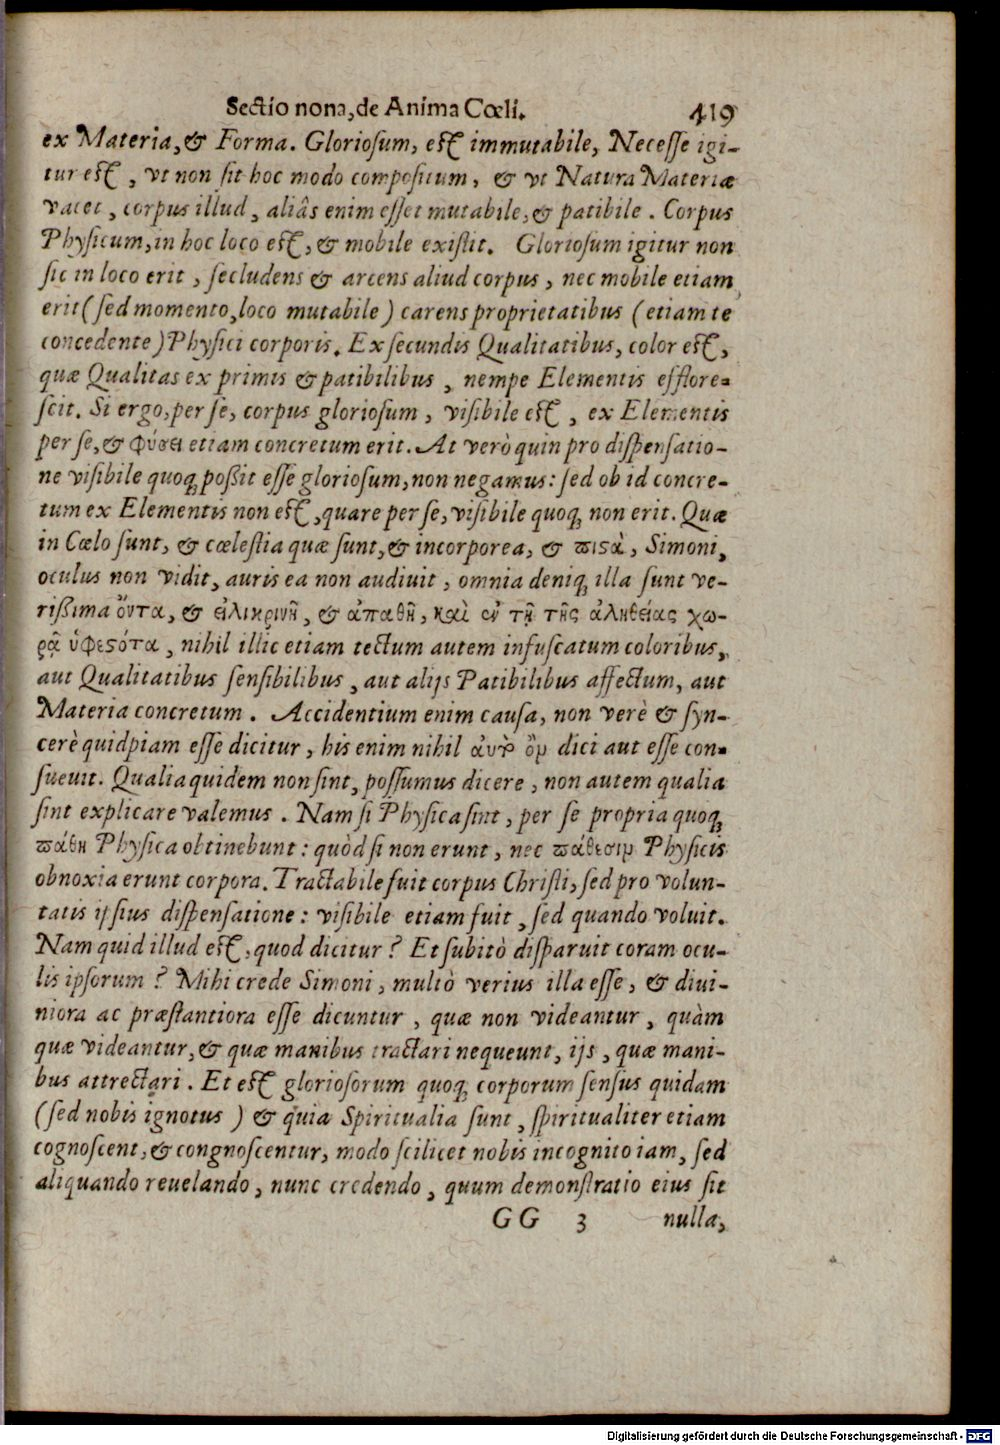 Sectio nona, de Anima Cœli. 419
ex Materia, & Forma. Gloriosum, est immutabile, Necesse igi-
tur est, vt non sit hoc modo compositum, & vt Natura Materiæ
vacet, corpus illud, aliâs enim esset mutabile, & patibile. Corpus
Physicum, in hoc loco est, & mobile existit. Gloriosum igitur non
sic in loco erit, secludens & arcens aliud corpus, nec mobile etiam
erit (sed momento, loco mutabile) carens proprietatibus (etiam te
concedente) Physici corporis. Ex secundis Qualitatibus, color est,
quæ Qualitas ex primis & patibilibus, nempe Elementis efflore-
scit. Si ergo, per se, corpus gloriosum, visibile est, ex Elementis
per se, & φύσει etiam concretum erit. At verò quin pro dispensatio-
ne visibile quoq; poßit esse gloriosum, non negamus: sed ob id concre-
tum ex Elementis non est, quare per se, visibile quoq; non erit. Quæ
in Cœlo sunt, & cœlestia quæ sunt, & incorporea, & ϖιϛὰ, Simoni,
oculus non vidit, auris ea non audiuit, omnia deniq; illa sunt ve-
rißima ὄντα, & εἰλικρινῆ, & ἀπαθῆ, καὶ ἐν τῇ τῆς ἀληθείας χω-
ρᾷ ὑφεϛότα, nihil illic etiam tectum autem infuscatum coloribus,
aut Qualitatibus sensibilibus, aut alijs Patibilibus affectum, aut
Materia concretum. Accidentium enim causa, non verè & syn-
cerè quidpiam esse dicitur, his enim nihil αὐτὸ ὂν dici aut esse con-
sueuit. Qualia quidem non sint, possumus dicere, non autem qualia
sint explicare valemus. Nam si Physica sint, per se propria quoq;
ϖάθη Physica obtinebunt: quòd si non erunt, nec ϖάθεσιν Physicis
obnoxia erunt corpora. Tractabile fuit corpus Christi, sed pro volun-
tatis ipsius dispensatione: visibile etiam fuit, sed quando voluit.
Nam quid illud est, quod dicitur? Et subitò disparuit coram ocu-
lis ipsorum? Mihi crede Simoni, multò verius illa esse, & diui-
niora ac præstantiora esse dicuntur, quæ non videantur, quàm
quæ videantur, & quæ manibus tractari nequeunt, ijs, quæ mani-
bus attrectari. Et est gloriosorum quoq; corporum sensus quidam
(sed nobis ignotus) & quia Spiritualia sunt, spiritualiter etiam
cognoscent, & congnoscentur, modo scilicet nobis incognito iam, sed
aliquando reuelando, nunc credendo, quum demonstratio eius sit
GG 3 nulla,
Digitalisierung gefördert durch die Deutsche Forschungsgemeinschaft - DFG